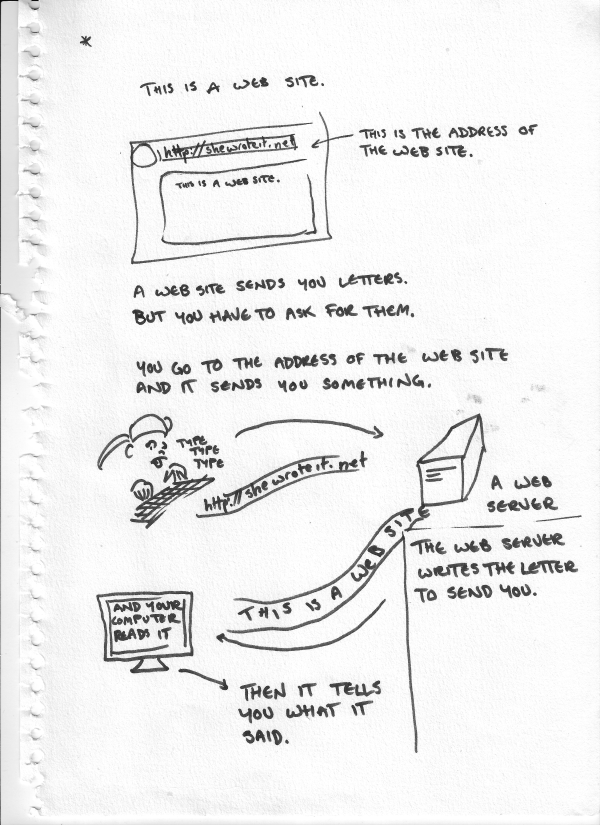 *
THIS IS A WEB SITE.
http://shewroteit.net
THIS IS THE ADDRESS OF
THE WEB SITE.
THIS IS A WEB SITE.
A WEB SITE SENDS YOU LETTERS.
BUT YOU HAVE TO ASK FOR THEM.
YOU GO TO THE ADDRESS OF THE WEB SITE
AND IT SENDS YOU SOMETHING.
TYPE
TYPE
TYPE
http://shewroteit.net
A WEB
SERVER
THE WEB SERVER
WRITES THE LETTER
TO SEND YOU.
THIS IS A WEB SITE
AND YOUR
COMPUTER
READS IT
THEN IT TELLS
YOU WHAT IT
SAID.